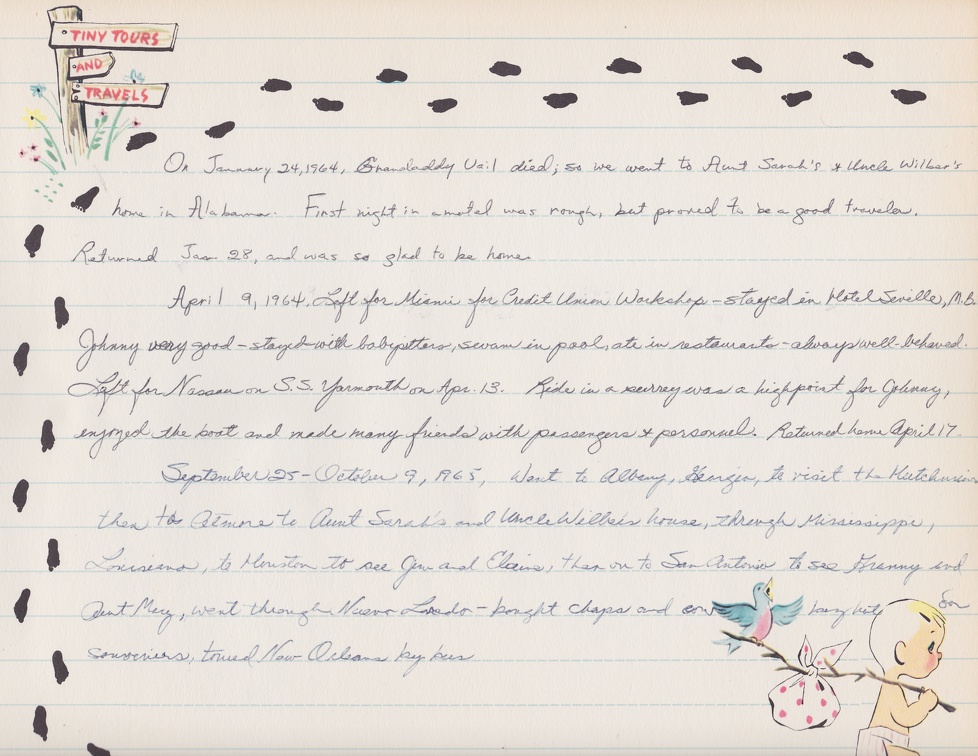 TINY TOURS
AND
TRAVELS
On January 24, 1964, Grandaddy Vail died; so we went to Aunt Sarah's & Uncle Wilber's
home in Alabama. First night in a motel was rough, but proved to be a good traveler.
Returned Jan. 28, and was so glad to be home.
April 9, 1964, Left for Miami for Credit Union Workshop - stayed in Hotel Seville, M.B.
Johnny very good - stayed with babysitters, swam in pool, ate in restaurants - always well-behaved.
Left for Nassau on S.S. Yarmouth on Apr. 13. Ride in a surrey was a highpoint for Johnny,
enjoyed the boat and made many friends with passengers & personnel. Returned home April 17.
September 25 - October 9, 1965, Went to Albany, Georgia, to visit the
then to Atmore to Aunt Sarah's and Uncle Wilber's house, through Mississippi,
Louisiana, to Houston to see Jim and Elaine, then on to San Antonio to see Granny and
Aunt Mary, went through Nuevo Laredo - bought chaps and cow for
souveniers, toured New Orleans by bus